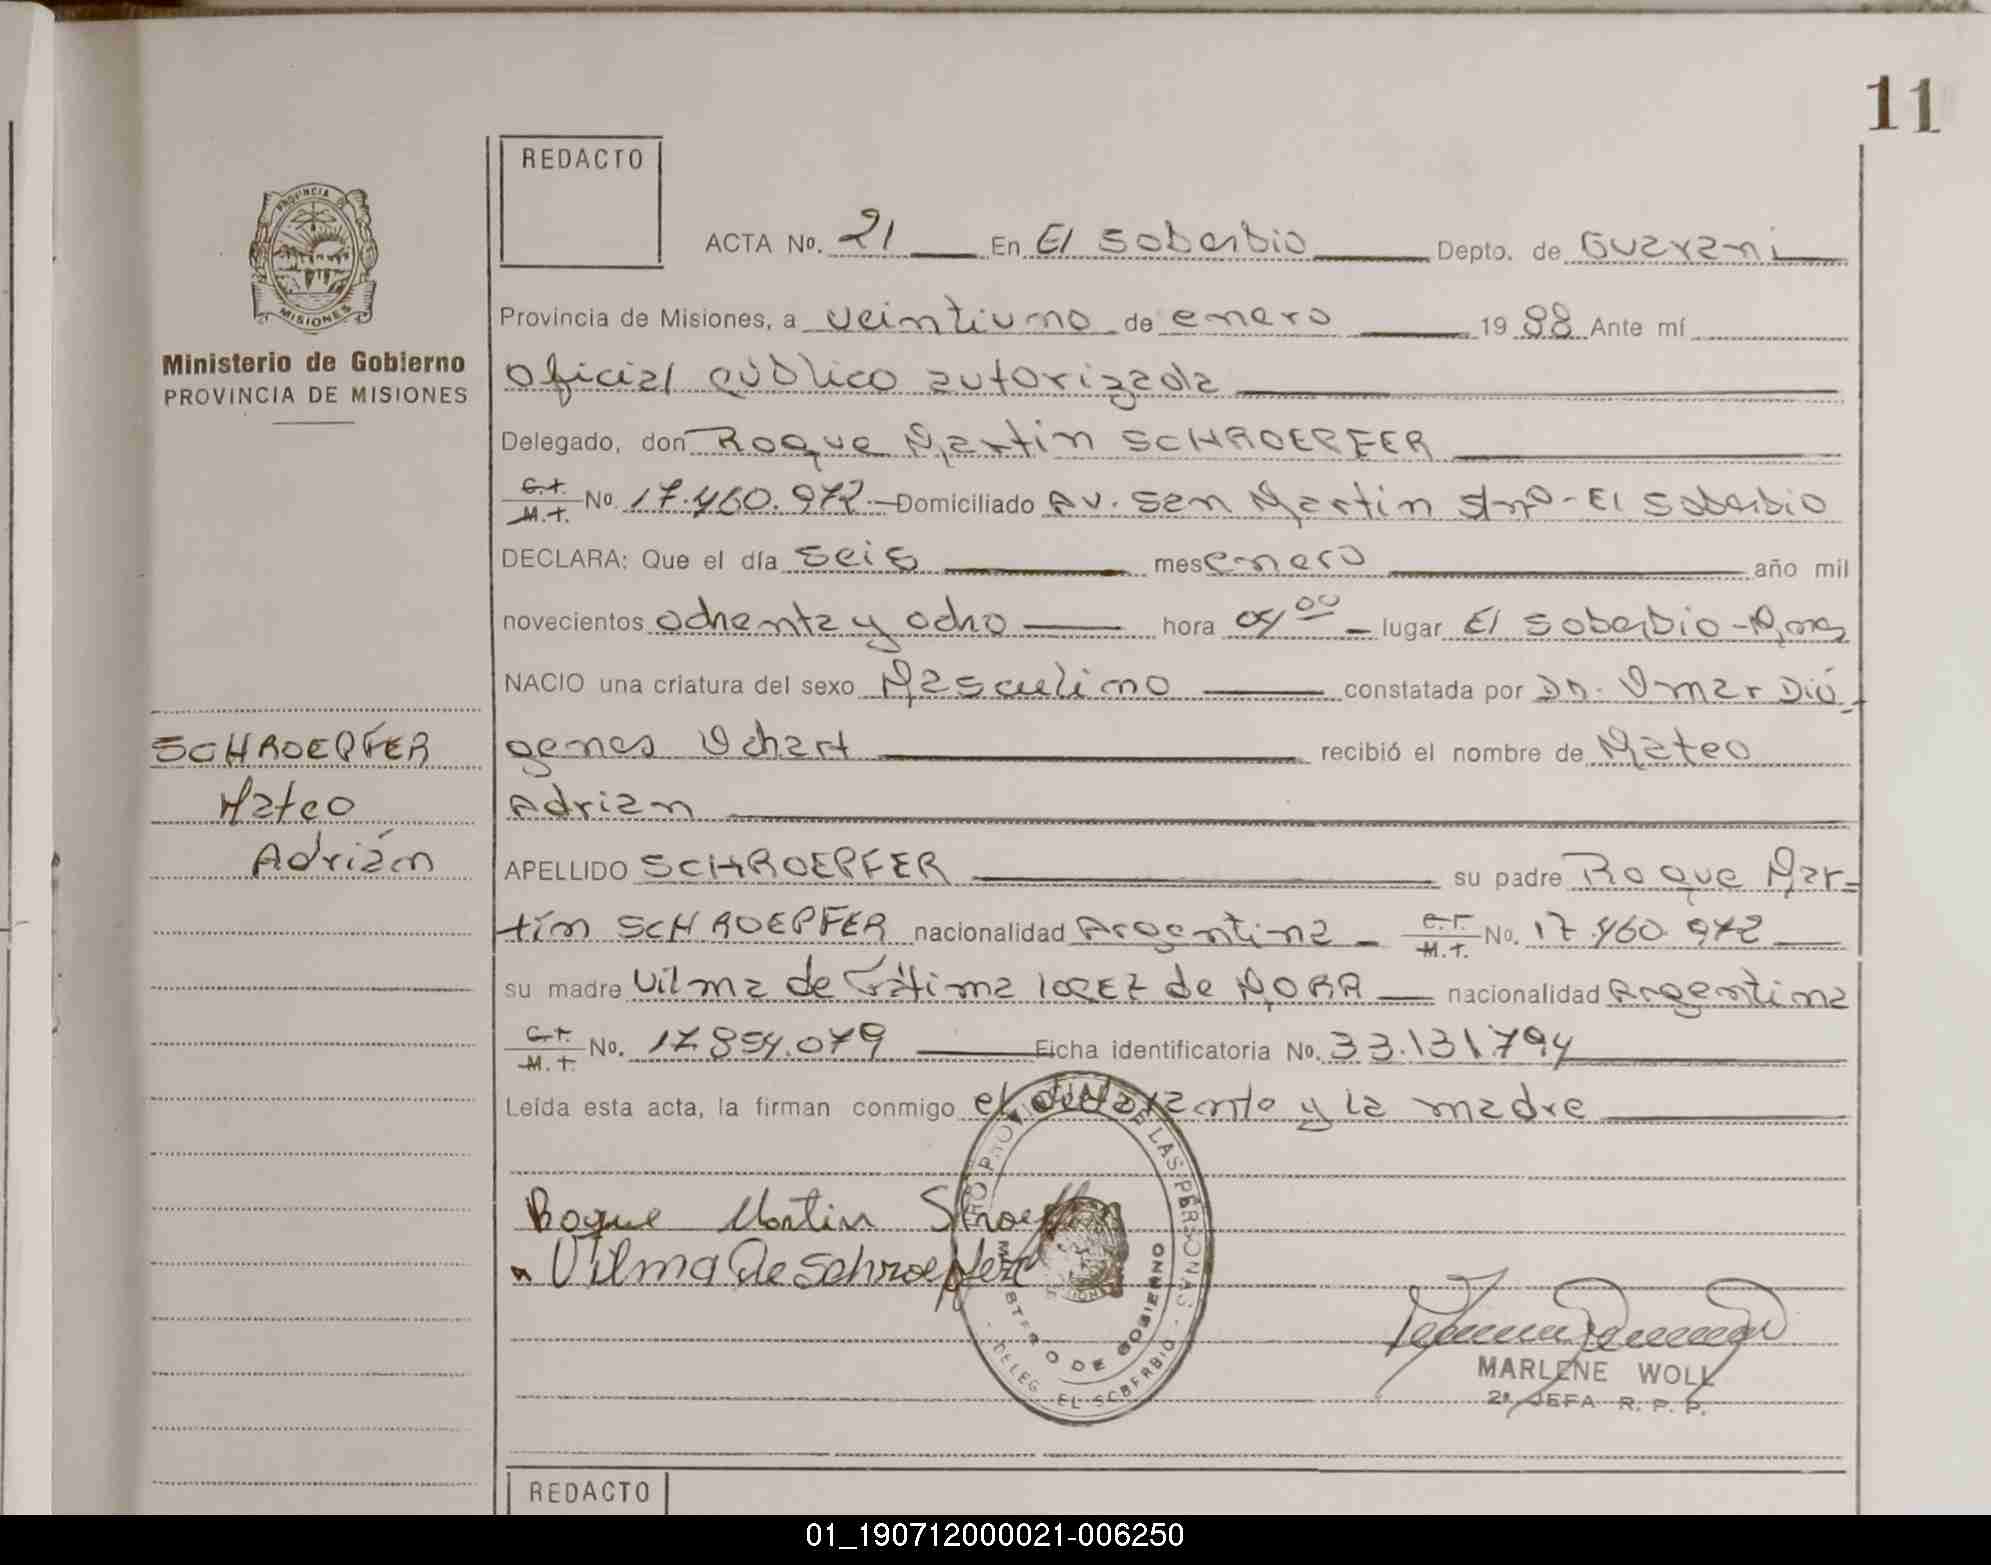 11
REDACTO
ACTA No. 21 En El Soberbio Depto. de Guarani
Provincia de Misiones, a veintiuno de enero 1988 Ante mí
Oficial público autorizada
Delegado, don Roque Martin SCHROEPFER
C.I. M.I. No. 17.460.972 Domiciliado Av. San Martin s/nº - El Soberbio
DECLARA: Que el día seis mes enero año mil
novecientos ochenta y ocho hora 04 00 lugar El Soberbio - Mnes
NACIO una criatura del sexo Masculino constatada por Dn. Omar Dió-
genes Ochart recibió el nombre de Mateo
Adrian
APELLIDO SCHROEPFER su padre Roque Mar=
tín SCHROEPFER nacionalidad Argentina C.I. M.I. No. 17.460.972
su madre Vilma de Fátima LOPEZ de MORA nacionalidad Argentina
C.I. M.I. No. 17.854.079 Ficha identificatoria No. 33.131.794
Leída esta acta, la firman conmigo el declarante y la madre
Roque Martin
Vilma de Schroepfer
MARLENE WOLL
2ª JEFA R. P. P.
REDACTO
PROVINCIA DE
MISIONES
Ministerio de Gobierno
PROVINCIA DE MISIONES
SCHROEPFER
Mateo
Adrián
PROVINCIAL DE LAS PERSONAS
MINISTERIO DE GOBIERNO
DELEG. EL SOBERBIO
01_190712000021-006250